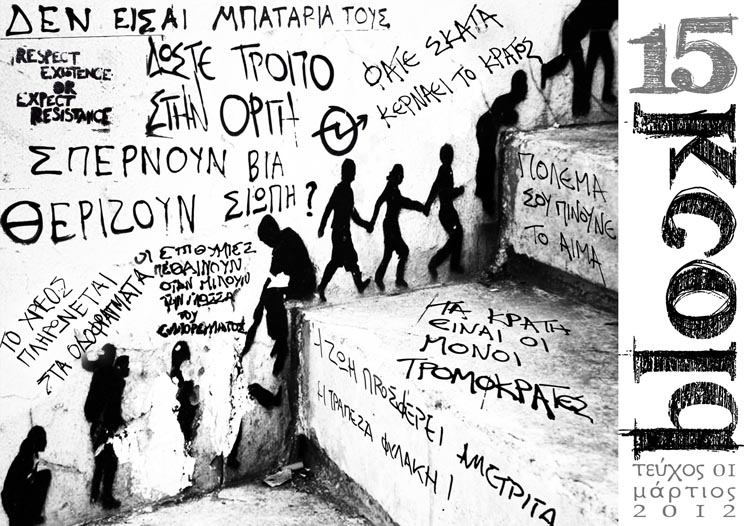 ΔΕΝ ΕΙΣΑΙ ΜΠΑΤΑΡΙΑ ΤΟΥΣ
RESPECT
EXISTENCE
OR
EXPECT
RESISTANCE
ΔΩΣΤΕ ΤΡΟΠΟ
ΣΤΗΝ ΟΡΓΗ
ΦΑΤΕ ΣΚΑΤΑ
ΚΕΡΝΑΕΙ ΤΟ ΚΡΑΤΟΣ
ΣΠΕΡΝΟΥΝ ΒΙΑ
ΘΕΡΙΖΟΥΝ ΣΙΩΠΗ?
ΟΙ ΕΠΙΘΥΜΙΕΣ
ΠΕΘΑΙΝΟΥΝ
ΟΤΑΝ ΜΙΛΟΥΝ
ΤΗΝ ΓΛΩΣΣΑ
ΤΟΥ
ΕΜΠΟΡΕΥΜΑΤΟΣ
ΤΟ ΧΡΕΟΣ
ΠΛΗΡΩΝΕΤΑΙ
ΣΤΑ ΟΔΟΦΡΑΓΜΑΤΑ
ΠΟΛΕΜΑ
ΣΟΥ ΠΙΝΟΥΝΕ
ΤΟ ΑΙΜΑ
ΤΑ ΚΡΑΤΗ
ΕΙΝΑΙ ΟΙ
ΜΟΝΟΙ
ΤΡΟΜΟΚΡΑΤΕΣ
Η ΖΩΗ ΠΡΟΣΦΕΡΕΙ ΑΜΕΤΡΙΤΑ
Η ΤΡΑΠΕΖΑ ΦΥΛΑΚΗ!
15
kcold
τεύχος 01
μάρτιος
2012